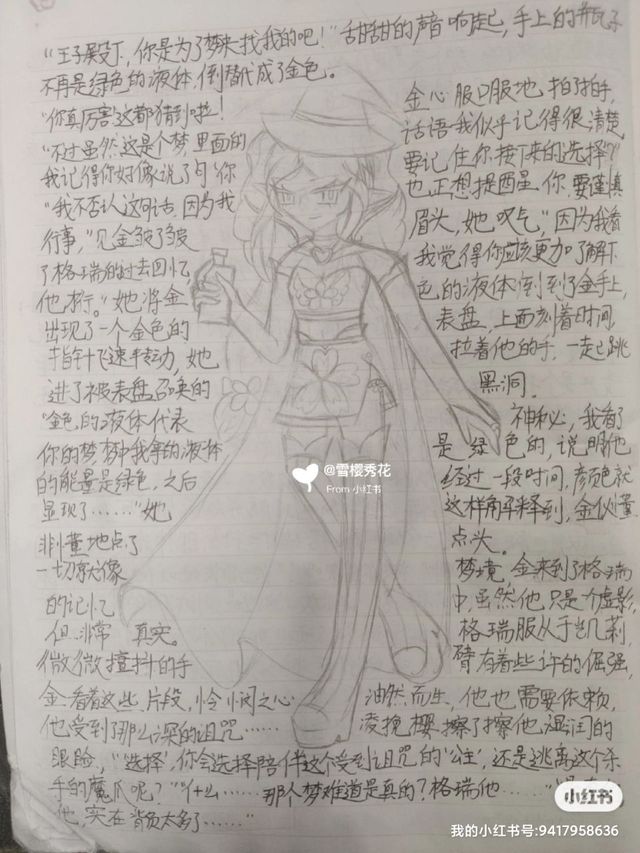 “王子殿下,你是为了梦来找我的吧!”甜甜的声音响起,手上的瓶子
不再是绿色的液体,倒替代成了金色。
“你真厉害这都猜到啦!” 金心服口服地拍了拍手,
“不过虽然这是个梦里面的话语我似乎记得很清楚,
我记得你好像说了句‘你要记住你接下来的选择’?”
“我不否认这句话,因为我也正想提醒你,你要谨慎
行事,”见金皱了皱眉头,她叹气,“因为我看
了格瑞的过去回忆,我觉得你应该更加了解下
他,行。”她将金色的液体倒到了金手上,
出现了一个金色的表盘,上面刻着时间,
指针飞速转动,她拉着他的手,一起跳
进了被表盘召唤的黑洞。
“金色的液体代表神秘,我看了
你的梦,梦中我拿的液体是绿色的,说明他
的能量是绿色,之后经过一段时间,颜色就
显现了……”她这样解释到,金似懂
非懂地点了点头。
一切就像梦境,金来到了格瑞
的记忆中,虽然他只是个虚影,
但非常真实。格瑞服从于凯莉,
微微撞抖的手臂有着些许的倔强,
金看着这些片段,怜悯之心油然而生,他也需要依赖,
他受到了那么深的诅咒……凌挽樱擦了擦他湿润的
眼睑,“选择,你会选择陪伴这个受到诅咒的‘公主’,还是逃离这个杀
手的魔爪呢?”“什么……那个梦难道是真的?格瑞他……”
他,实在背负太多了……”
@雪樱秀花
From 小红书
小红书
我的小红书号:9417958636